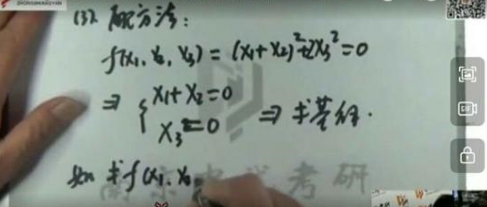 (3). 配方法：
f(x₁, x₂, x₃) = (x₁+x₂)²+2x₃² = 0
⇒ { x₁+x₂=0
x₃=0 ⇒ 求基础
如 求 f(x₁, x₂
考研